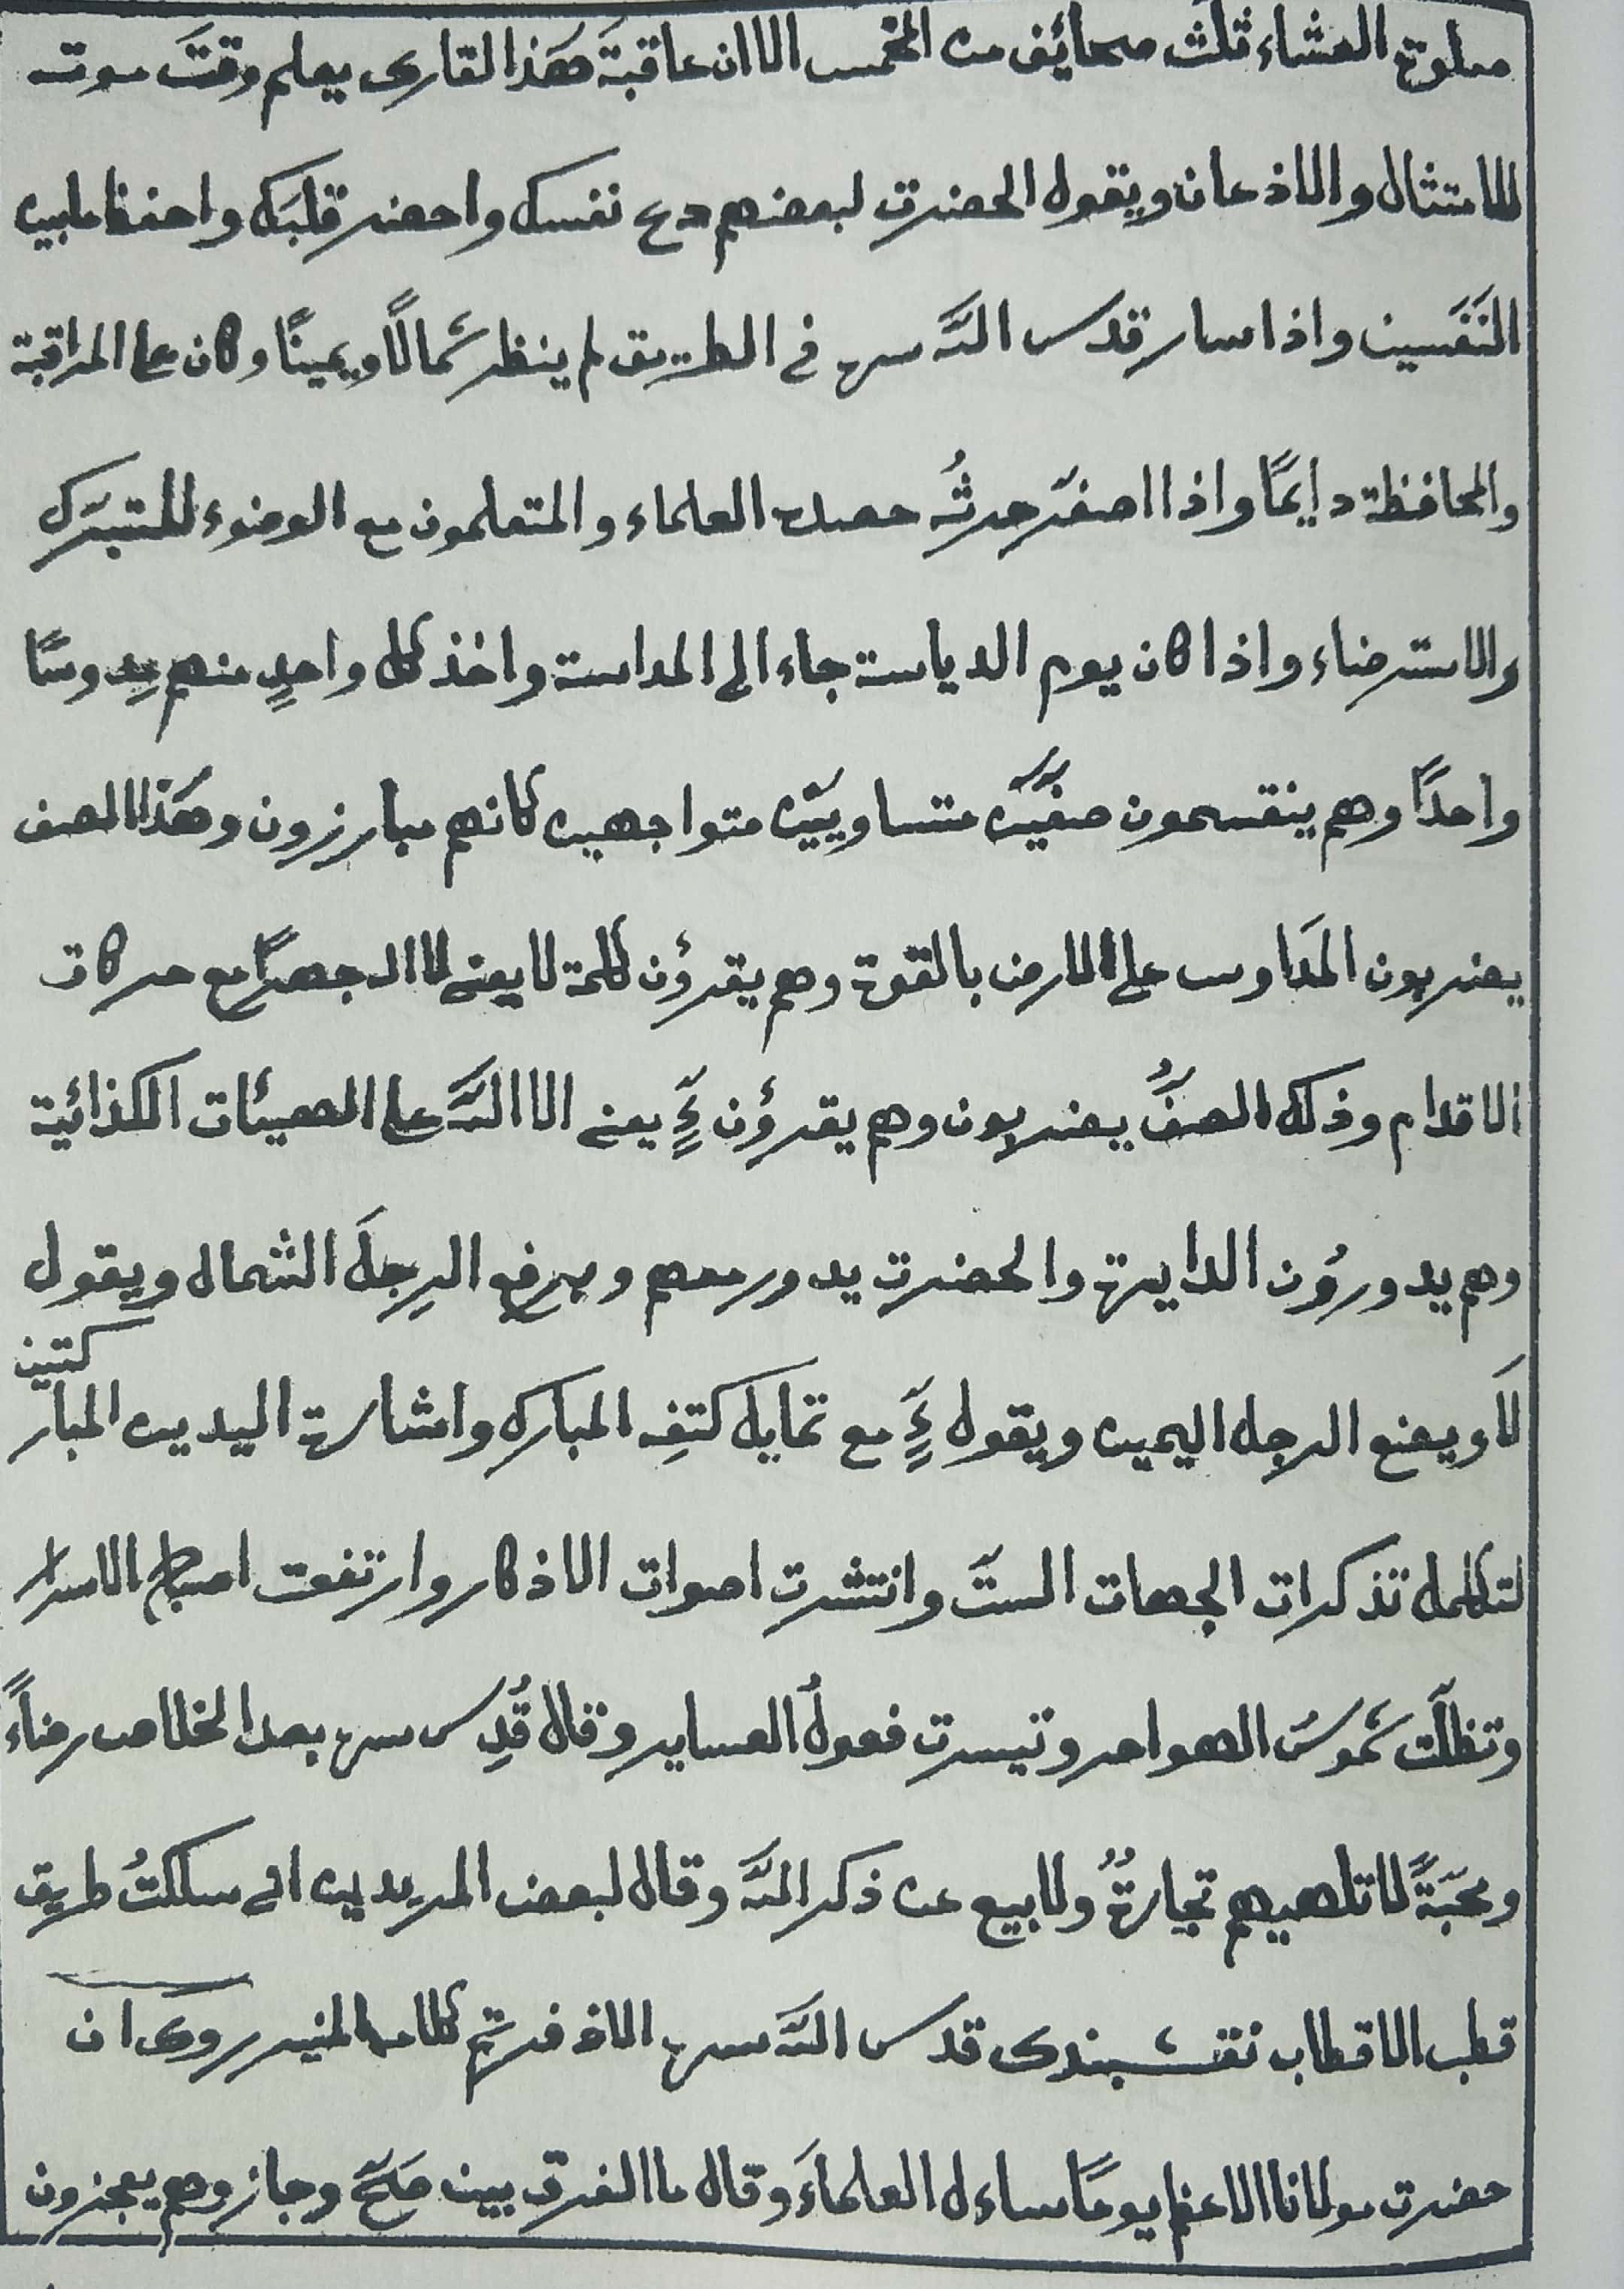 صلوة العشاء ثلث صحائف من الخمس الا ان عاقبة هذا القارى يعلم وقت موته
للامتثال والاذعان ويقول الحضرت لبعضهم دع نفسك واحضر قلبك واحفظ ما بين
النفسين واذا سار قدس الله سره في الطريق لم ينظر شمالًا ويمينًا وكان على المراقبة
والمحافظة دايمًا واذا اصفر حدثُه حصل العلماء والمتعلمون مع الوضوء للتبرك
والاسترضاء واذا كان يوم الدياسة جاء الى المداسة واخذ كل واحدٍ منهم مِدوسًا
واحدًا وهم ينقسمون صفَّين متساويَين متواجهين كانهم مبارزون وهَذا الصف
يضربون المَداوس على الارض بالقوة وهم يقرؤن كلمة لا يعنى لا اله جهرًا مع حركات
الاقدام وذلك الصفُّ يضربون وهم يقرؤن يعنى الا الله على الهيئات الكذائية
وهم يدورُون الدايرة والحضرت يدور معهم ويرفع الرِجلَ الشمال ويقول
لَا ويضع الرجل اليمين ويقول مع تمايل كتفِه المبارك واشارة اليدين المبار
كتين
لتكمل تذكرات الجهات الست وانتشرت اصوات الاذكار وارتفعت اصباح الاسرار
وتظلّت شموسُ الهواجر وتيسرت فصولُ العساير وقال قُدِس سره بعد الخلاص رضاءً
ومحبّةً لا تلهيهم تجارةٌ ولا بيع عن ذكر الله وقال لبعض المريدين انى سلكتُ طريق
قطب الاقطاب نقشبندى قدس الله سره الاذفر تم كلامه المنير روى ان
حضرت مولانا الاعظم يومًا ساءل العلماءَ وقال ما الفرق بين صَحَّ وجاز وهم يعجزون